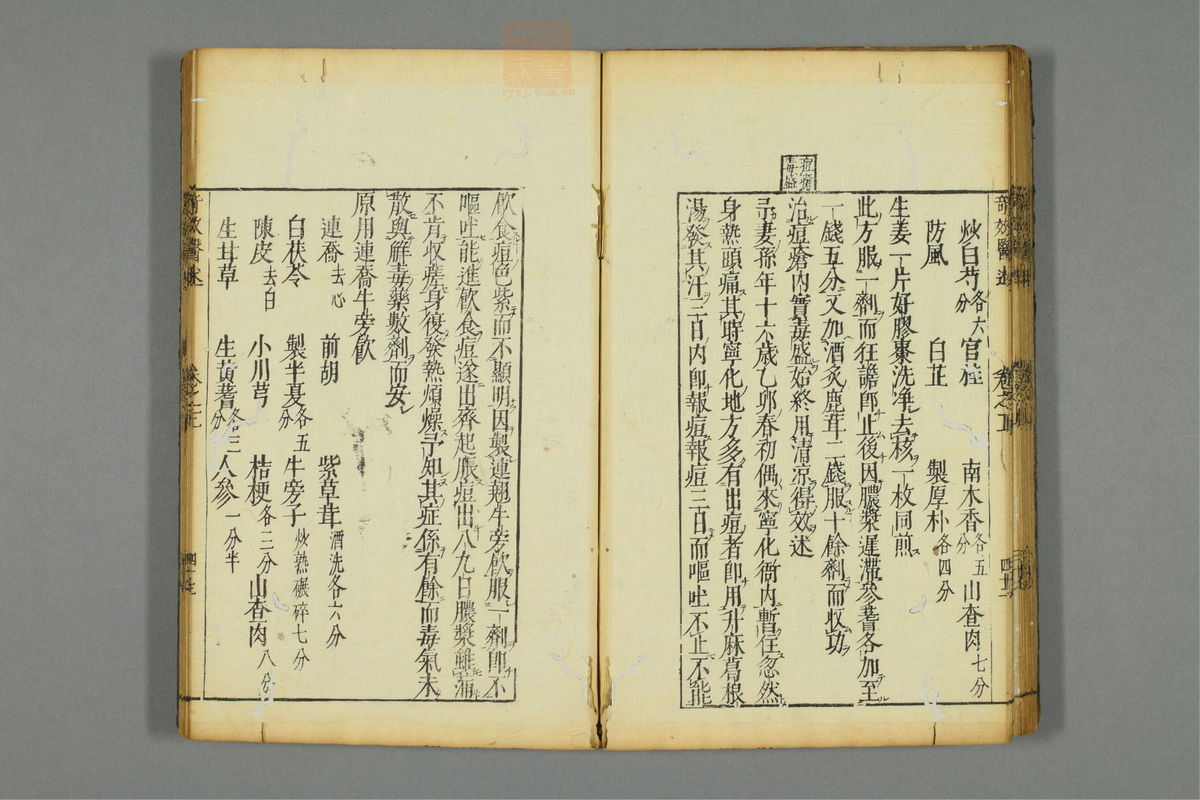 炒白芍各六分 官桂 南木香各五分 山查肉七分
防風 白芷 製厚朴各四分
生姜一片好膠棗洗净去核一枚同煎
此方服一劑而狂譫即止後因膿漿遲滯參耆各加至
一錢五分又加酒炙鹿茸二錢服十餘劑而收功
痘瘡毒盛
治痘瘡内實毒盛始終用清凉得效述
予妻孫年十六歲乙卯春初偶來寧化衙内暫住忽然
身熱頭痛其時寧化地方多有出痘者即用升麻葛根
湯發其汗三日内即報痘報痘三日而嘔吐不止不能
飲食痘色紫而不顯明因製連翹牛旁飲服一劑即不
嘔吐能進飲食痘遂出齊起脹痘出八九日膿漿雖滿
不肯收靨身復發熱煩燥予知其症係有餘而毒氣未
散與解毒藥數劑而安
原用連喬牛旁飲
連喬去心 前胡 紫草茸酒洗各六分
白茯苓 製半夏各五分 牛旁子炒熟碾碎七分
陳皮去白 小川芎 桔梗各三分 山查肉八分
生甘草 生黄耆各三分 人參一分半
奇效醫述
卷之二
zysj.com.cn